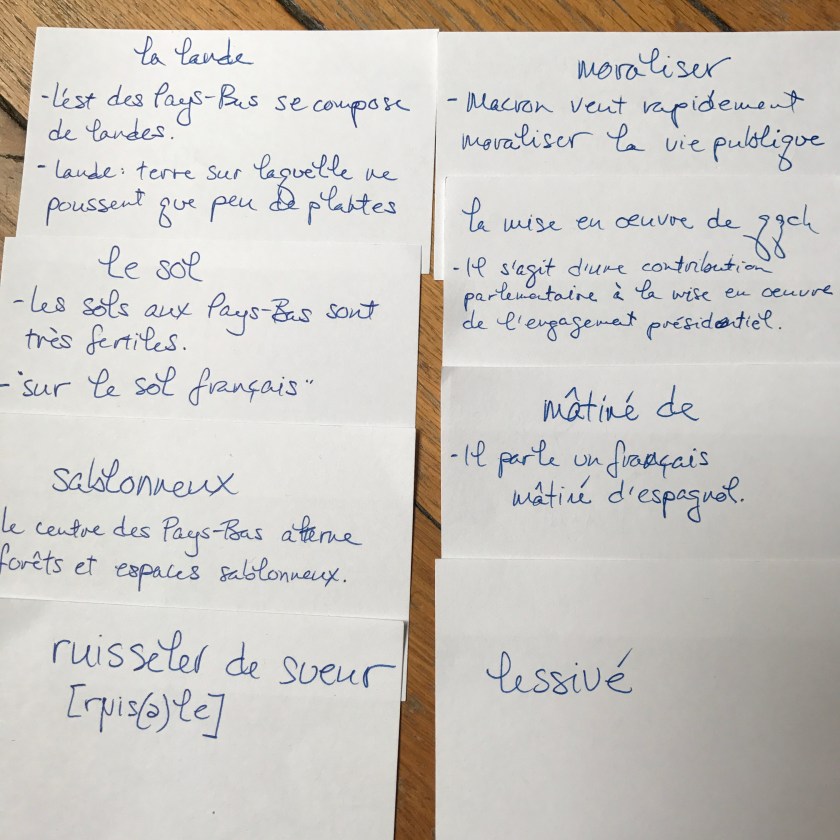 la lande
- L'est des Pays-Bas se compose
de landes.
- Lande : terre sur laquelle ne
poussent que peu de plantes
le sol
- Les sols aux Pays-Bas sont
très fertiles.
- "sur le sol français"
sablonneux
le centre des Pays-Bas alterne
forêts et espaces sablonneux.
ruisseler de sueur
[rɥis(ə)le]
moraliser
- Macron veut rapidement
moraliser la vie publique
la mise en œuvre de qqch
- Il s'agit d'une contribution
parlementaire à la mise en œuvre
de l'engagement présidentiel.
mâtiné de
- Il parle un français
mâtiné d'espagnol.
lessivé